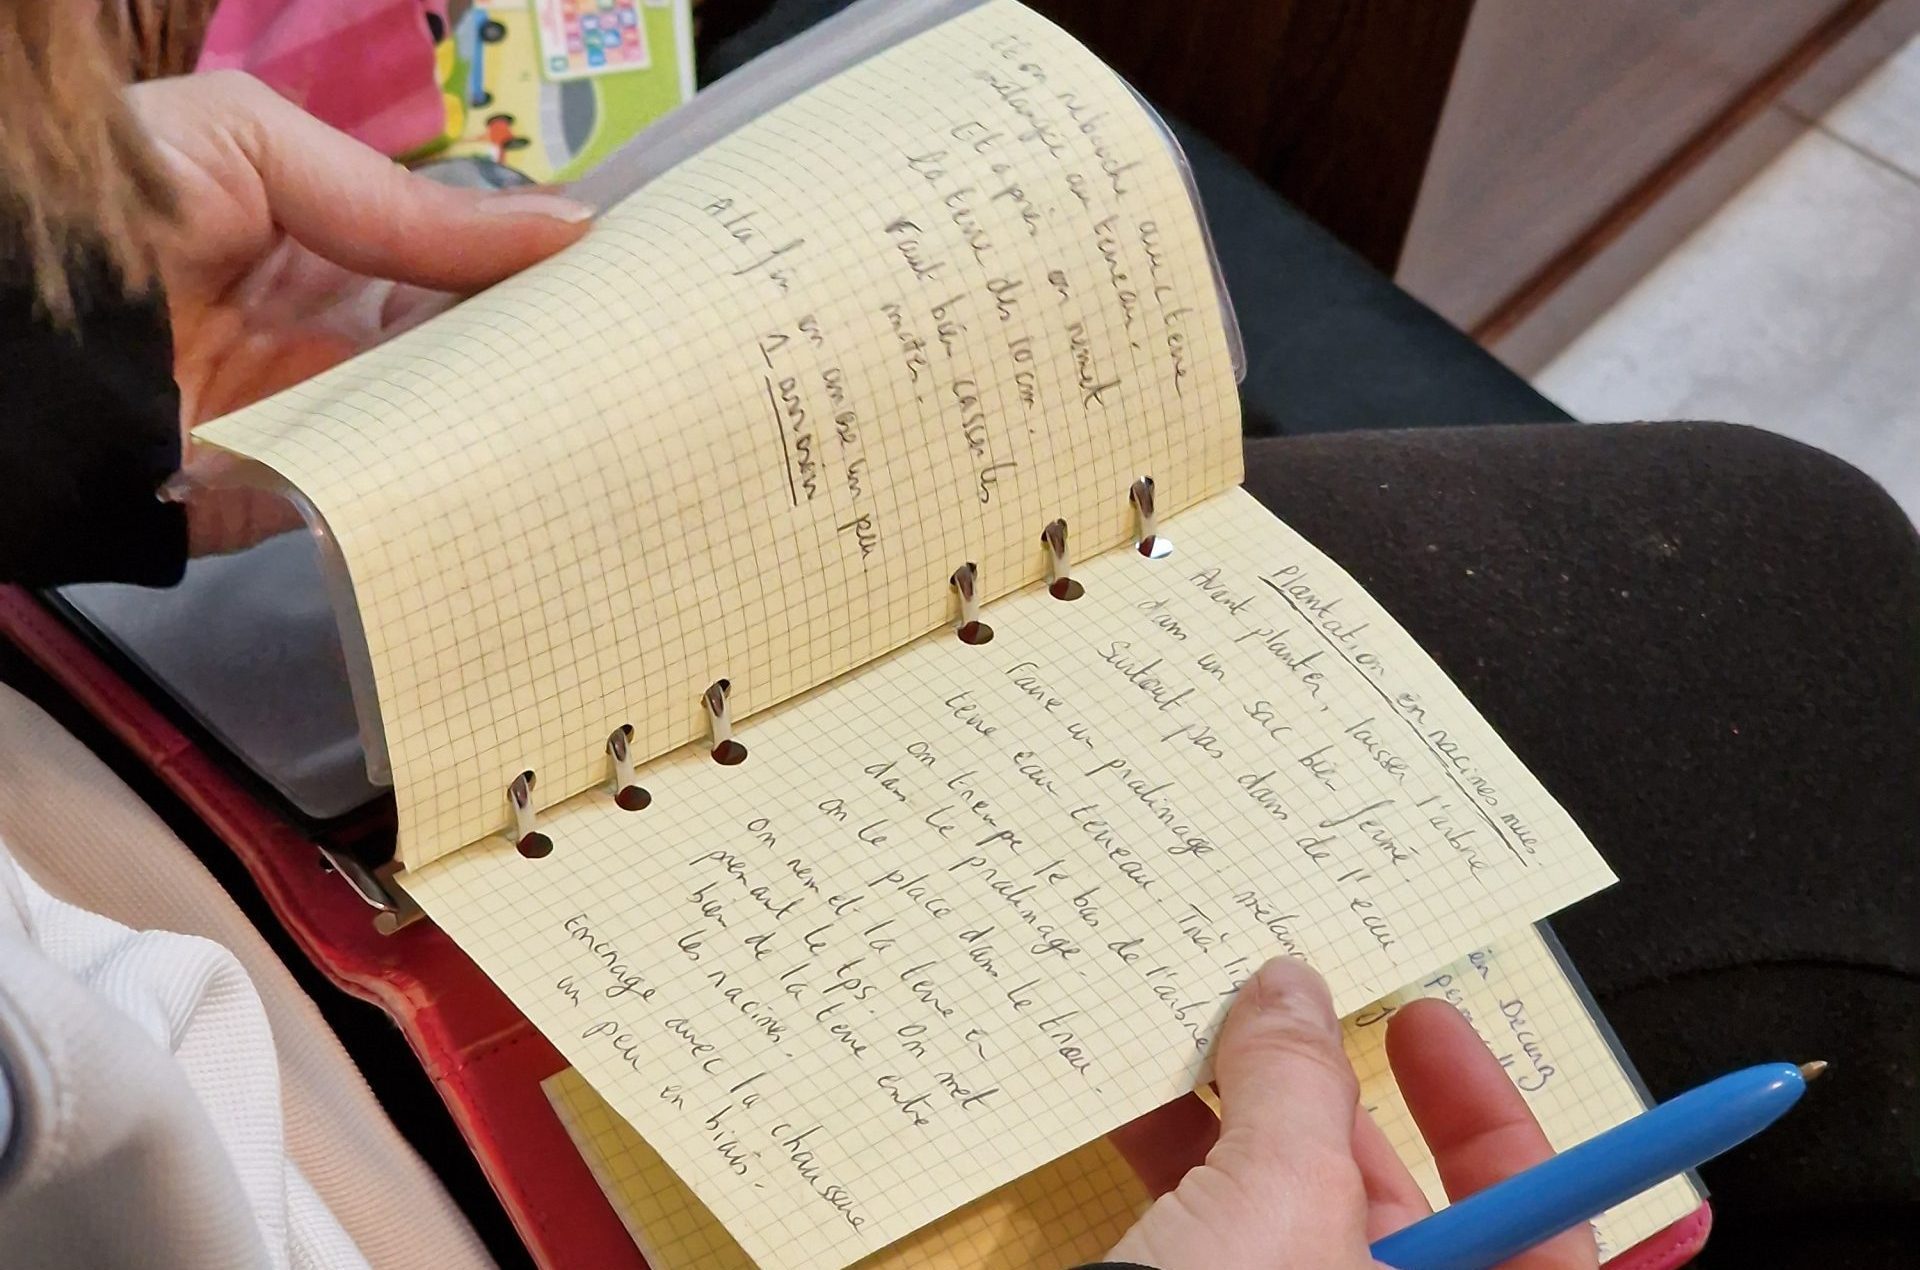 Et on rebouche avec terre
melangée au terreau.
Et après on remet
la terre des 10 cm.
Faut bien casser les
motes.
A la fin on arrose un peu
1 arrosoir
Plantation en racines nues.
Avant planter, laisser l'arbre
dans un sac bien fermé.
Surtout pas dans de l'eau
Faire un pralinage :
terre eau terreau. Très
on trempe le bas de l'arbre
dans le pralinage.
on le place dans le trou.
on remet la terre en
prenant le tps. On met
bien de la terre entre
les racines.
Encrage avec la chaussure
un peu en biais.
en